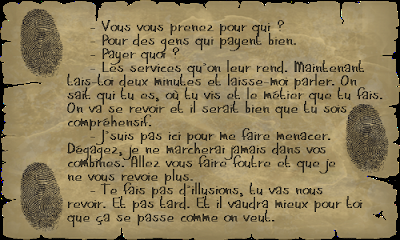 - Vous vous prenez pour qui ?
- Pour des gens qui payent bien.
- Payer quoi ?
- Les services qu'on leur rend. Maintenant
tais-toi deux minutes et laisse-moi parler. On
sait qui tu es, où tu vis et le métier que tu fais.
On va se revoir et il serait bien que tu sois
compréhensif.
- J'suis pas ici pour me faire menacer.
Dégagez, je ne marcherai jamais dans vos
combines. Allez vous faire foutre et que je
ne vous revoie plus.
- Te fais pas d'illusions, tu vas nous
revoir. Et pas tard. Et il vaudra mieux pour toi
que ça se passe comme on veut..